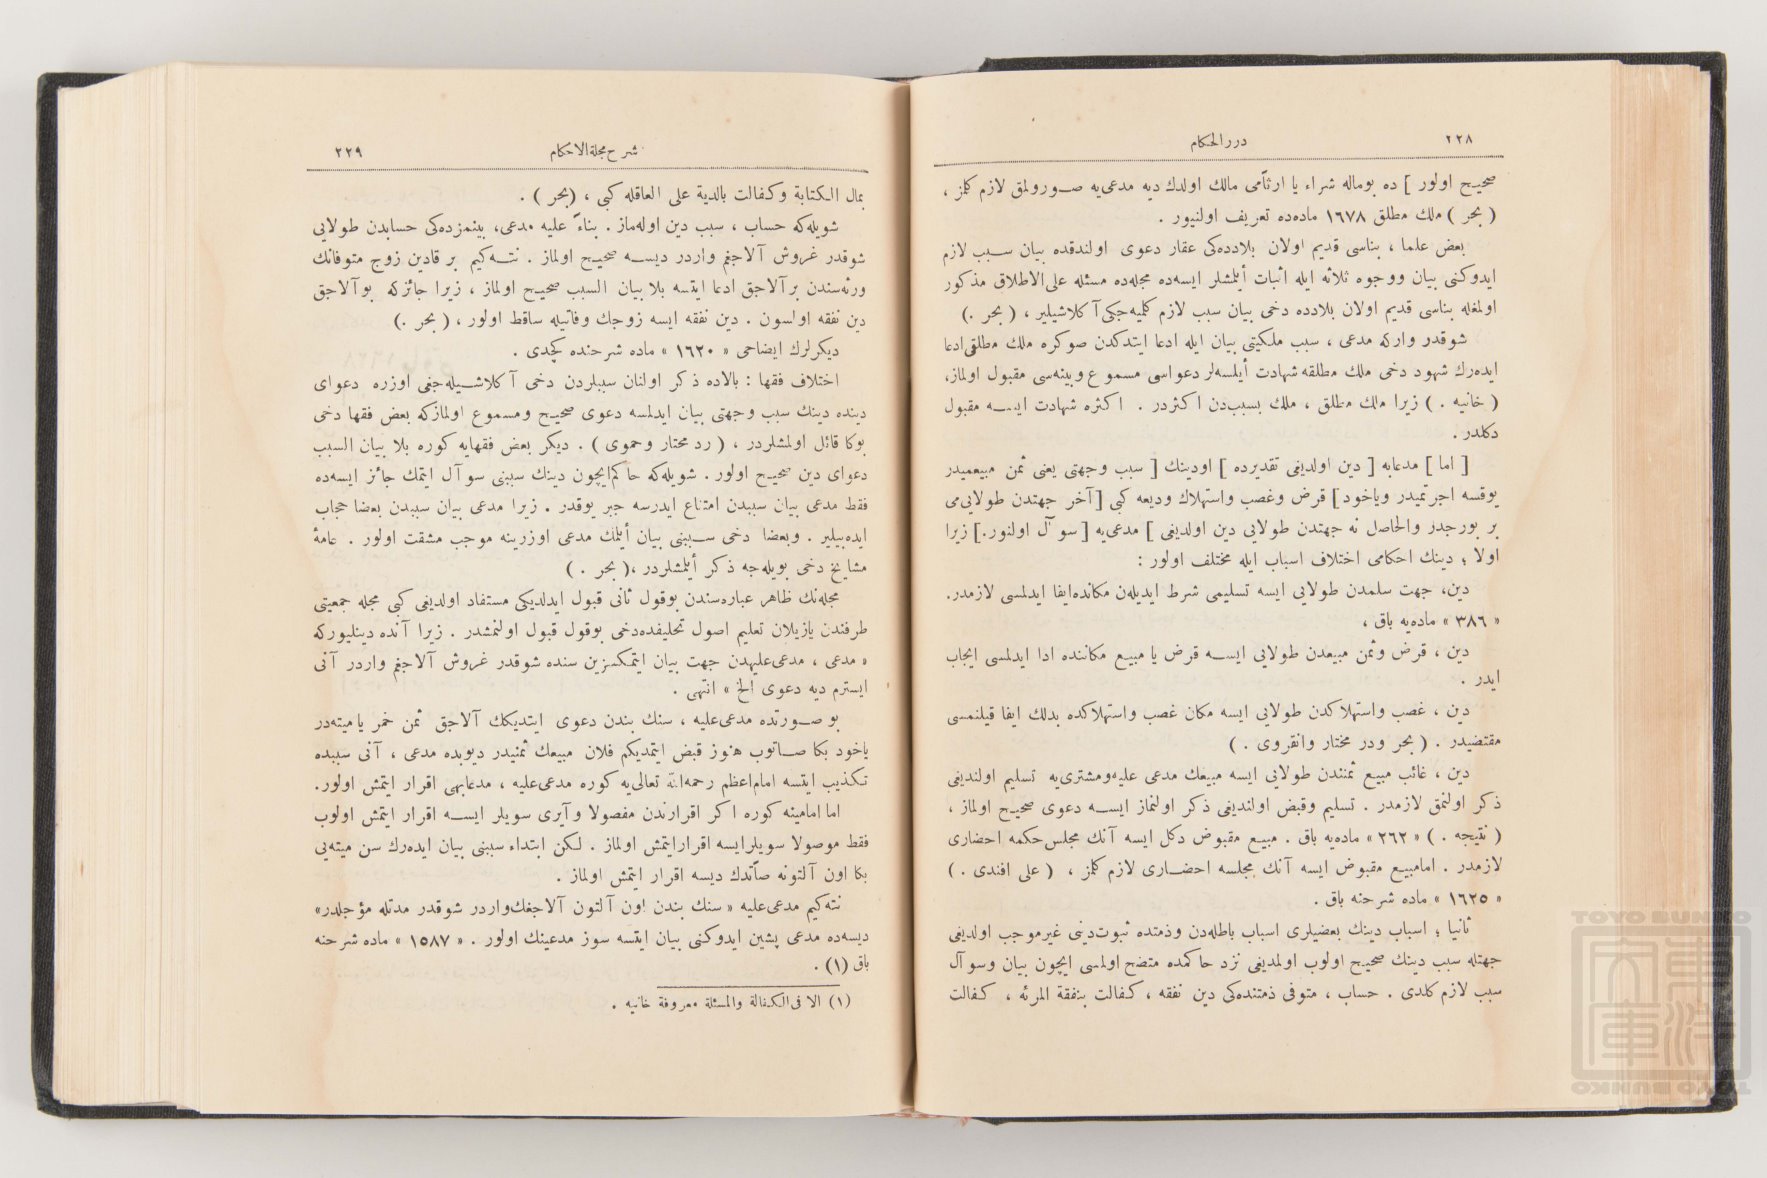 ٢٢٨
درر الحكام
صحيح اولور ] ده بوماله شراء يا ارثاًمى مالك اولدك ديه مدعى‌يه صورولمق لازم كلمز ،
( بحر ) ملك مطلق ١٦٧٨ ماده‌ده تعريف اولنيور .
بعض علما ، بناسى قديم اولان بلادده‌كى عقار دعوى اولندقده بيان سبب لازم
ايدوكنى بيان ووجوه ثلاثه ايله اثبات أيلمشلر ايسه‌ده مجله‌ده مسئله على الاطلاق مذكور
اولمغله بناسى قديم اولان بلادده دخى بيان سبب لازم كلميه‌جكى آكلاشيلير ، ( بحر .)
شوقدر واركه مدعى ، سبب ملكيتى بيان ايله ادعا ايتدكدن صوكره ملك مطلقى ادعا
ايده‌رك شهود دخى ملك مطلقه شهادت أيلسه‌لر دعواسى مسموع وبينه‌سى مقبول اولماز،
( خانيه . ) زيرا ملك مطلق ، ملك بسببدن اكثردر . اكثره شهادت ايسه مقبول
دكلدر .
[ اما ] مدعابه [ دين اولديغى تقديرده ] اودينك [ سبب وجهتى يعنى ثمن مبيعميدر
يوقسه اجرتميدر وياخود ] قرض وغصب واستهلاك وديعه كبى [ آخر جهتدن طولايى‌مى
بر بورجدر والحاصل نه جهتدن طولايى دين اولديغى ] مدعى‌يه [ سوآل اولنور.] زيرا
اولا ؛ دينك احكامى اختلاف اسباب ايله مختلف اولور :
دين، جهت سلمدن طولايى ايسه تسليمى شرط ايديلن مكانده ايفا ايدلمسى لازمدر.
« ٣٨٦ » ماده‌يه باق ،
دين ، قرض وثمن مبيعدن طولايى ايسه قرض يا مبيع مكاننده ادا ايدلمسى ايجاب
ايدر .
دين ، غصب واستهلاكدن طولايى ايسه مكان غصب واستهلاكده بدلك ايفا قيلنمسى
مقتضيدر . ( بحر ودر مختار وانقروى . )
دين ، غائب مبيع ثمنندن طولايى ايسه مبيعك مدعى عليه ومشترى‌يه تسليم اولنديغى
ذكر اولنمق لازمدر . تسليم وقبض اولنديغى ذكر اولنماز ايسه دعوى صحيح اولماز ،
( نتيجه . ) « ٢٦٢ » ماده‌يه باق . مبيع مقبوض دكل ايسه آنك مجلس حكمه احضارى
لازمدر . امامبيع مقبوض ايسه آنك مجلسه احضارى لازم كلمز ، ( على افندى . )
« ١٦٢٥ » ماده شرحنه باق .
ثانيا ؛ اسباب دينك بعضيلرى اسباب باطله‌دن وذمتده ثبوت دينى غيرموجب اولديغى
جهتله سبب دينك صحيح اولوب اولمديغى نزد حاكمده متضح اولمسى ايچون بيان وسوآل
سبب لازم كلدى . حساب ، متوفى ذمتنده‌كى دين نفقه ، كفالت بنفقة المرئه ، كفالت
شرح مجلة الاحكام
٢٢٩
بمال الكتابة وكفالت بالدية على العاقله كبى ، (بحر ) .
شويله‌كه حساب ، سبب دين اوله‌ماز . بناءً عليه مدعى، بينمزده‌كى حسابدن طولايى
شوقدر غروش آلاجغم واردر ديسه صحيح اولماز . نته‌كيم بر قادين زوج متوفانك
ورثه‌سندن بر آلاجق ادعا ايتسه بلا بيان السبب صحيح اولماز ، زيرا جائزكه بو آلاجق
دين نفقه اولسون . دين نفقه ايسه زوجك وفاتيله ساقط اولور ، ( بحر .)
ديكرلرك ايضاحى « ١٦٢٠ » ماده شرحنده كچدى .
اختلاف فقها : بالاده ذكر اولنان سببلردن دخى آكلاشيله‌جغى اوزره دعواى
دينده دينك سبب وجهتى بيان ايدلمسه دعوى صحيح ومسموع اولمازكه بعض فقها دخى
بوكا قائل اولمشلردر ، ( رد مختار وحموى ) . ديكر بعض فقهايه كوره بلا بيان السبب
دعواى دين صحيح اولور . شويله‌كه حاكم ايچون دينك سببنى سوآل ايتمك جائز ايسه‌ده
فقط مدعى بيان سببدن امتناع ايدرسه جبر يوقدر . زيرا مدعى بيان سببدن بعضا حجاب
ايده‌بيلير . وبعضا دخى سببنى بيان أيلمك مدعى اوزرينه موجب مشقت اولور . عامهٔ
مشايخ دخى بويله‌جه ذكر أيلمشلردر ،( بحر . )
مجله‌نك ظاهر عباره‌سندن بوقول ثانى قبول ايدلديكى مستفاد اولديغى كبى مجله جمعيتى
طرفندن يازيلان تعليم اصول تحليفده‌دخى بوقول قبول اولنمشدر . زيرا آنده دينليوركه
« مدعى ، مدعى‌عليهدن جهت بيان ايتمكسزين سنده شوقدر غروش آلاجغم واردر آنى
ايسترم ديه دعوى الخ » انتهى .
بو صورتده مدعى‌عليه ، سنك بندن دعوى ايتديكك آلاجق ثمن خمر يا ميته‌در
ياخود بكا صاتوب هنوز قبض ايتمديكم فلان مبيعك ثمنيدر ديوبده مدعى ، آنى سببده
تكذيب ايتسه امام‌اعظم رحمه‌الله تعالى‌يه كوره مدعى‌عليه ، مدعابهى اقرار ايتمش اولور.
اما امامينه كوره اكر اقرارندن مفصولا وآيرى سويلر ايسه اقرار ايتمش اولوب
فقط موصولا سويلرايسه اقرارايتمش اولماز . لكن ابتداء سببنى بيان ايده‌رك سن ميته‌يى
بكا اون آلتونه صاتدك ديسه اقرار ايتمش اولماز .
نته‌كيم مدعى‌عليه « سنك بندن اون آلتون آلاجغك‌واردر شوقدر مدتله مؤجلدر»
ديسه‌ده مدعى پشين ايدوكنى بيان ايتسه سوز مدعينك اولور . « ١٥٨٧ » ماده شرحنه
باق (١) .
(١) الا فى الكفالة والمسئلة معروفة خانيه .
TOYO BUNKO
東洋文庫
TOYO BUNKO